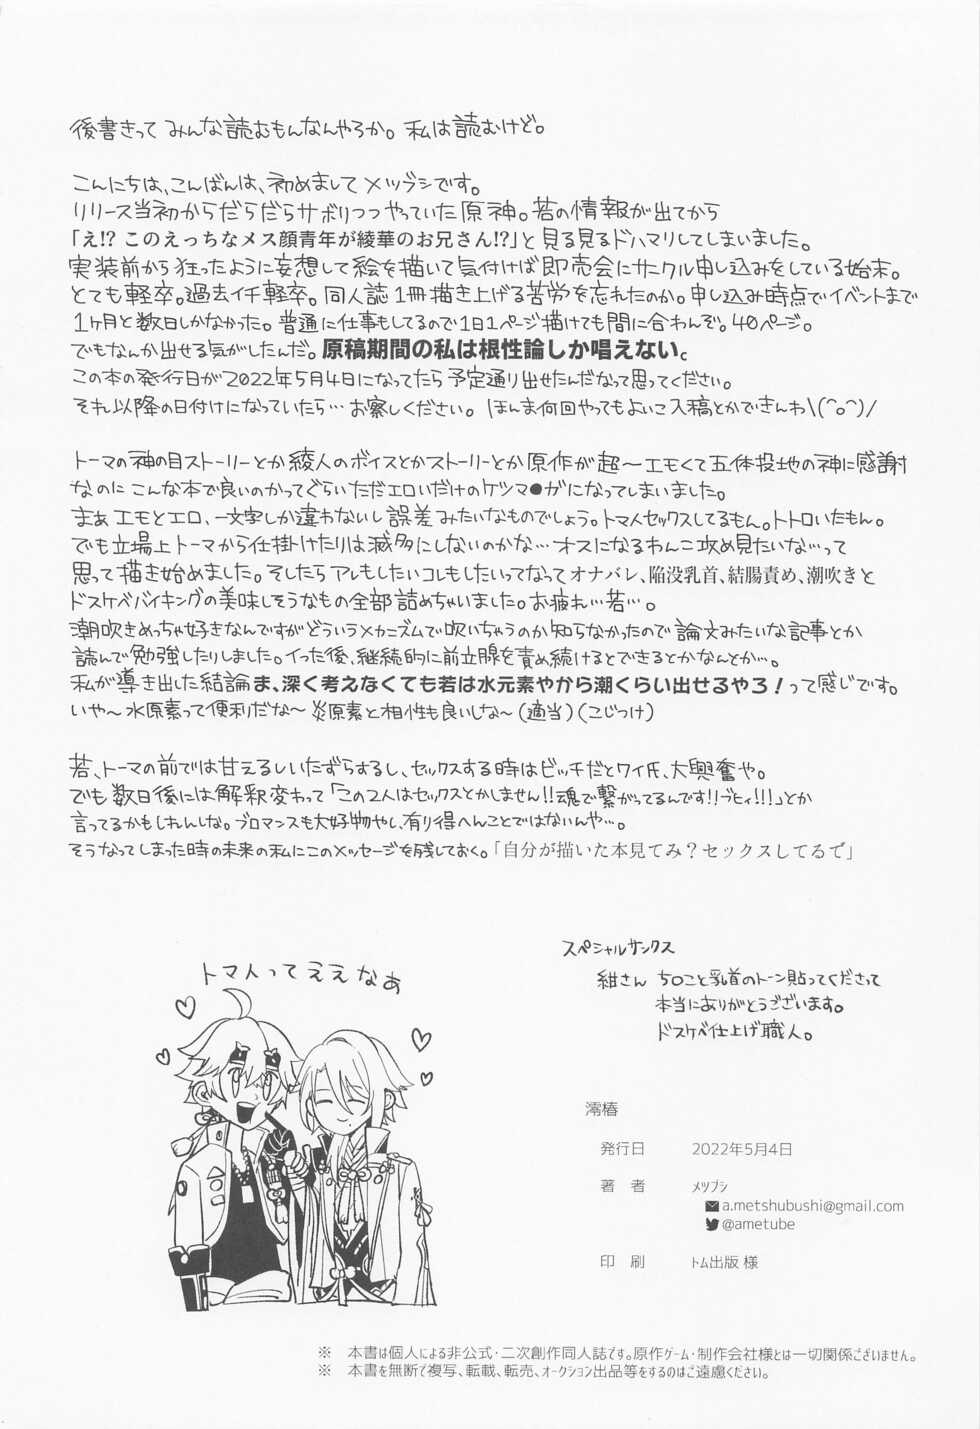 後書きって みんな読むもんなんやろか。私は読むけど。
こんにちは、こんばんは、初めまして メツブシです。
リリース当初からだらだらサボりつつやっていた原神。若の情報が出てから
「え!? このえっちなメス顔青年が綾華のお兄さん!?」と 見る見るドハマりしてしまいました。
実装前から狂ったように妄想して絵を描いて気付けば即売会にサークル申し込みをしている始末。
とても軽卒。過去イチ軽卒。同人誌1冊描き上げる苦労を忘れたのか。申し込み時点でイベントまで
1ヶ月と数日しかなかった。普通に仕事もしてるので1日1ページ描けても間に合わんぞ。40ページ。
でもなんか出せる気がしたんだ。原稿期間の私は根性論しか唱えない。
この本の発行日が2022年5月4日になってたら予定通り出せたんだなって思ってください。
それ以降の日付けになっていたら…お察しください。ほんま何回やってもよいこ入稿とかできんわ\(^o^)/
トーマの神の目ストーリーとか綾人のボイスとかストーリーとか原作が超〜エモくて五体投地の神に感謝
なのに こんな本で良いのかってぐらいただエロいだけのケツマ●がになってしまいました。
まぁエモとエロ、一文字しか違わないし誤差みたいなものでしょう。トマ人セックスしてるもん。トトロいたもん。
でも立場上トーマから仕掛けたりは滅多にしないのかな…オスになるわんこ攻め見たいな…って
思って描き始めました。そしたらアレもしたいコレもしたいってなってオナバレ、陥没乳首、結腸責め、潮吹きと
ドスケベバイキングの美味しそうなもの全部詰めちゃいました。お疲れ…若…。
潮吹きめっちゃ好きなんですがどういうメカニズムで吹いちゃうのか知らなかったので論文みたいな記事とか
読んで勉強したりしました。イった後、継続的に前立腺を責め続けるとできるとかなんとか…。
私が導き出した結論ま、深く考えなくても若は水元素やから潮くらい出せるやろ！って感じです。
いや〜水原素って便利だな〜炎原素と相性も良いしな〜(適当)(こじつけ)
若、トーマの前では甘えるしいたずらするし、セックスする時はビッチだとワイ氏、大興奮や。
でも数日後には解釈変わって「この2人はセックスとかしません!!魂で繋がってるんです!!ブヒィ!!!」とか
言ってるかもしれんしな。ブロマンスも大好物やし、有り得へんことではないんや…。
そうなってしまった時の未来の私にこのメッセージを残しておく。「自分が描いた本見てみ？セックスしてるで」
トマ人ってええなぁ
スペシャルサンクス
紺さん ち○こと乳首のトーン貼ってくださって
本当にありがとうございます。
ドスケベ仕上げ職人。
澪椿
発行日 2022年5月4日
著 者 メツブシ
a.metshubushi@gmail.com
@ametube
印 刷 トム出版 様
※ 本書は個人による非公式・二次創作同人誌です。原作ゲーム・制作会社様とは一切関係ございません。
※ 本書を無断で複写、転載、転売、オークション出品等をするのはご遠慮ください。